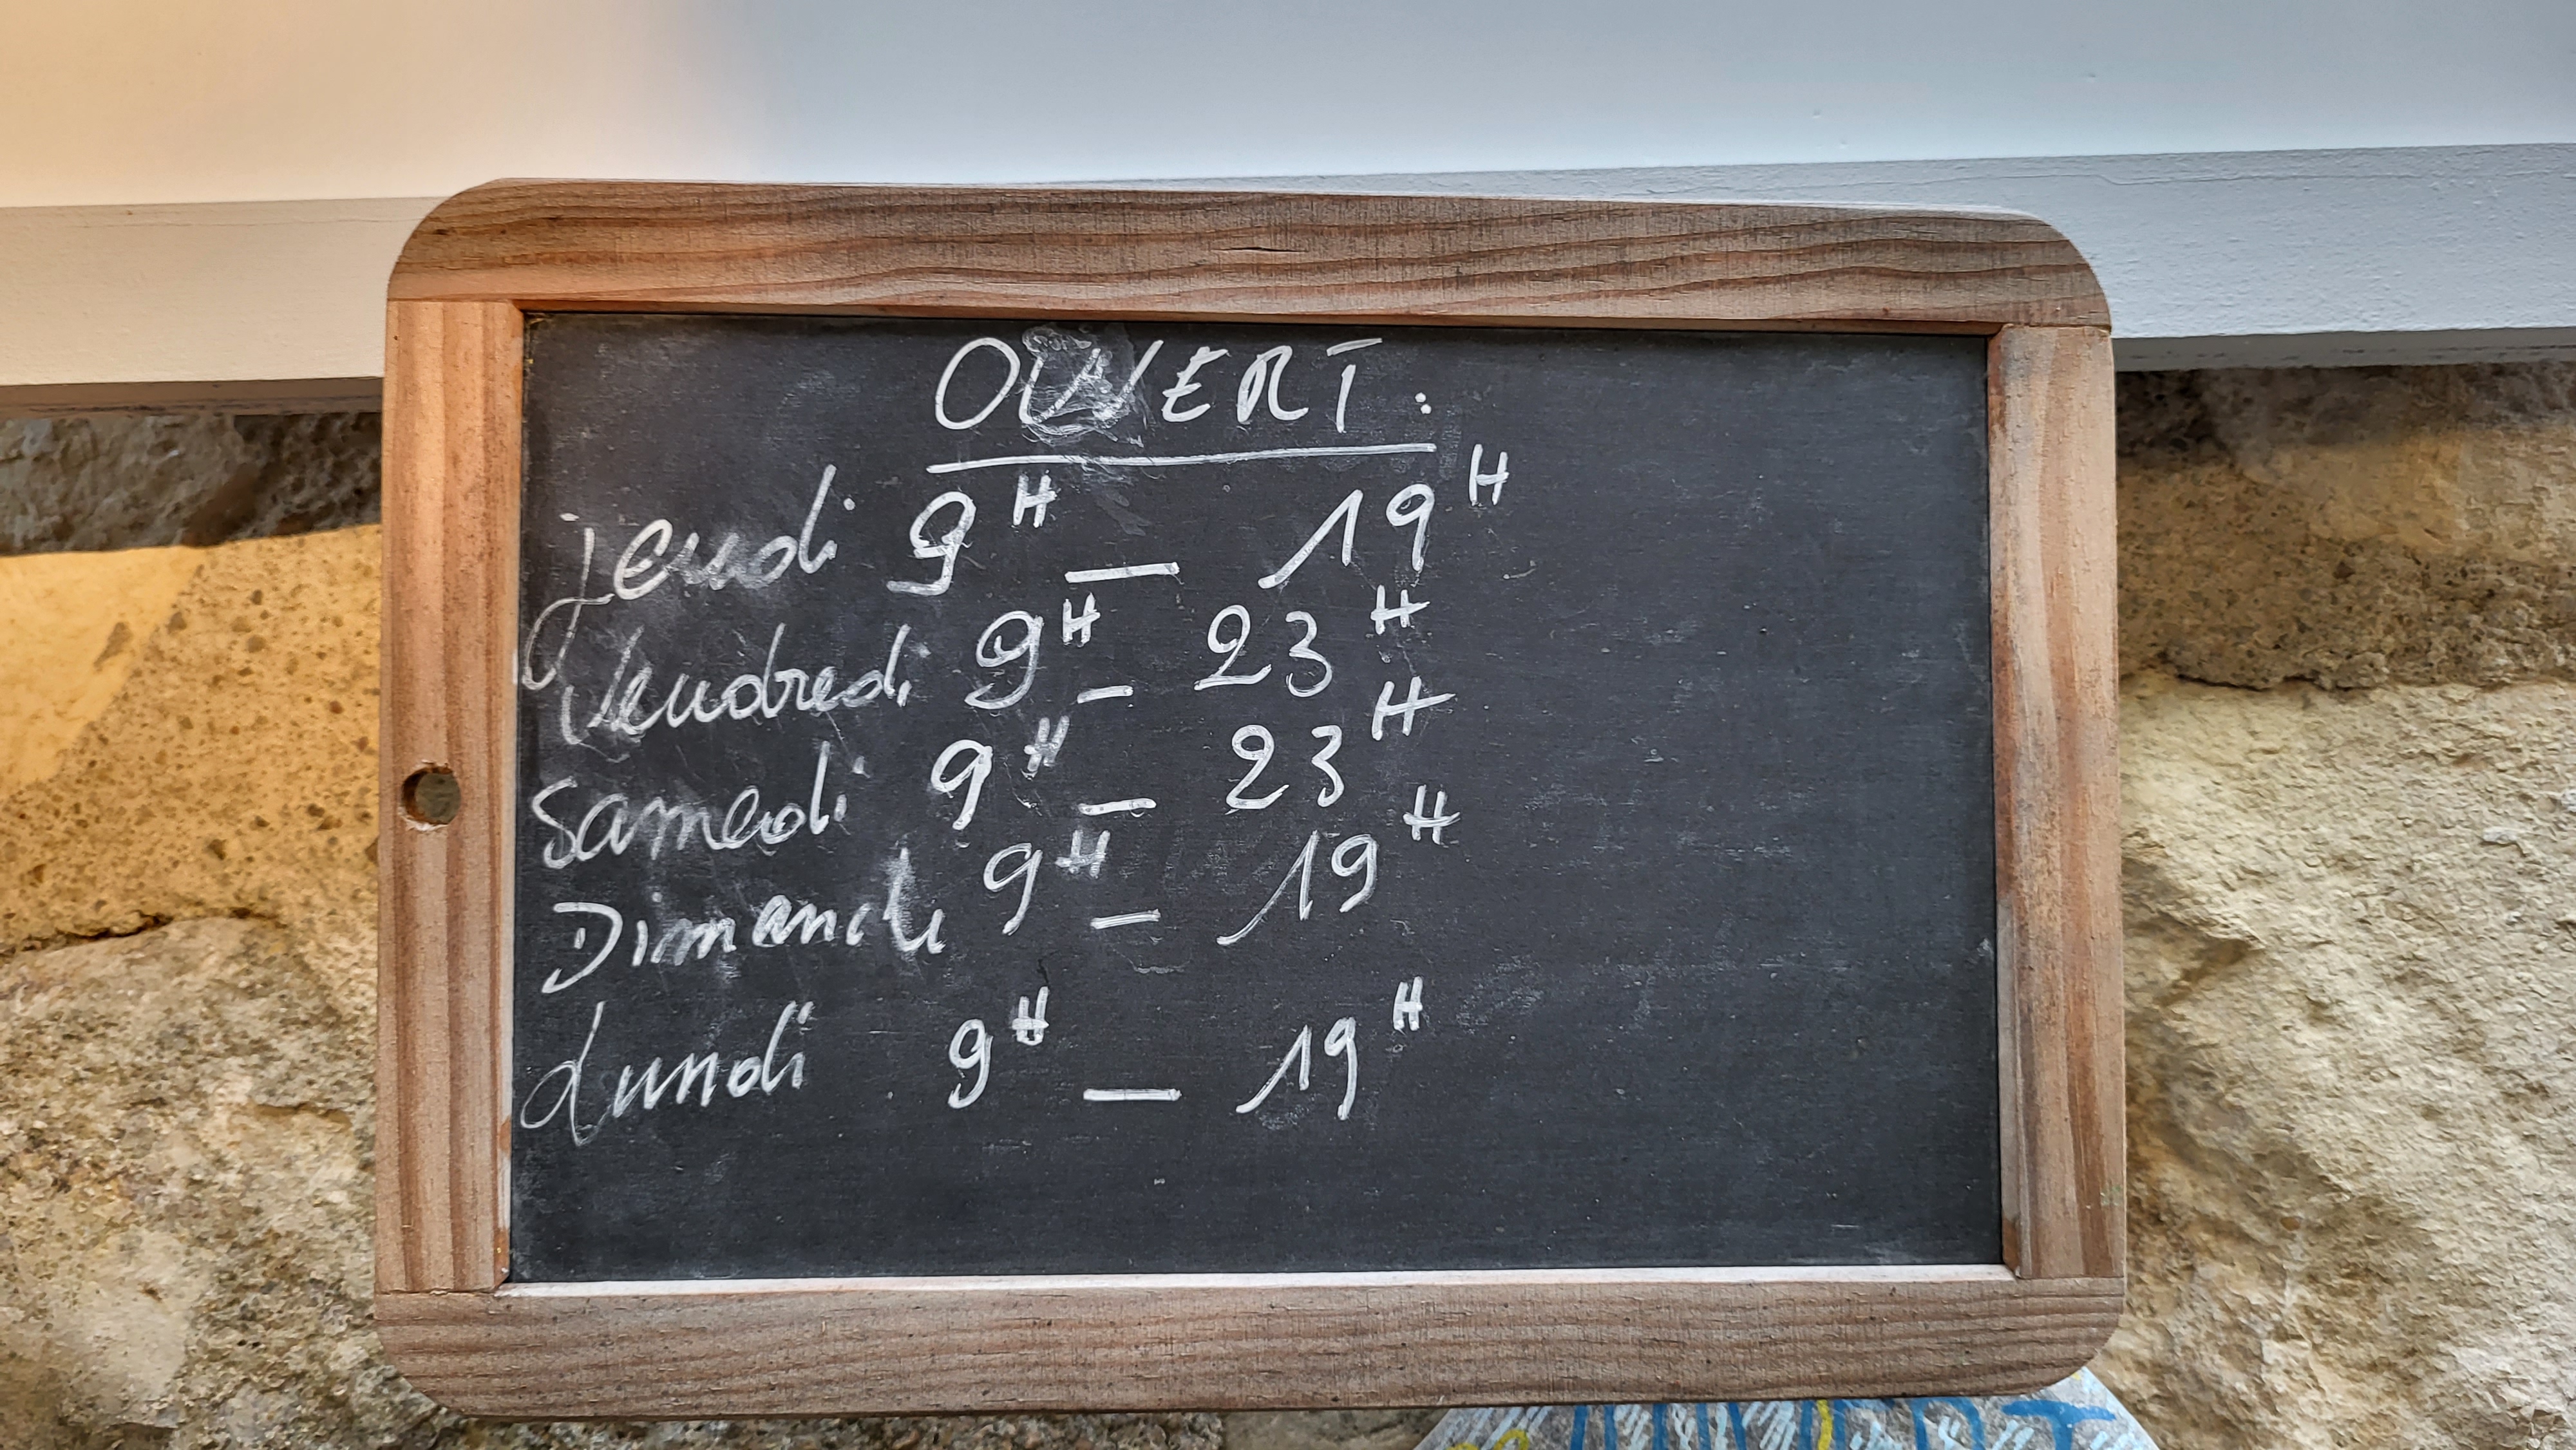 OUVERT :
jeudi 9H — 19H
Vendredi 9H — 23H
Samedi 9H — 23H
Dimanche 9H — 19H
Lundi 9H — 19H